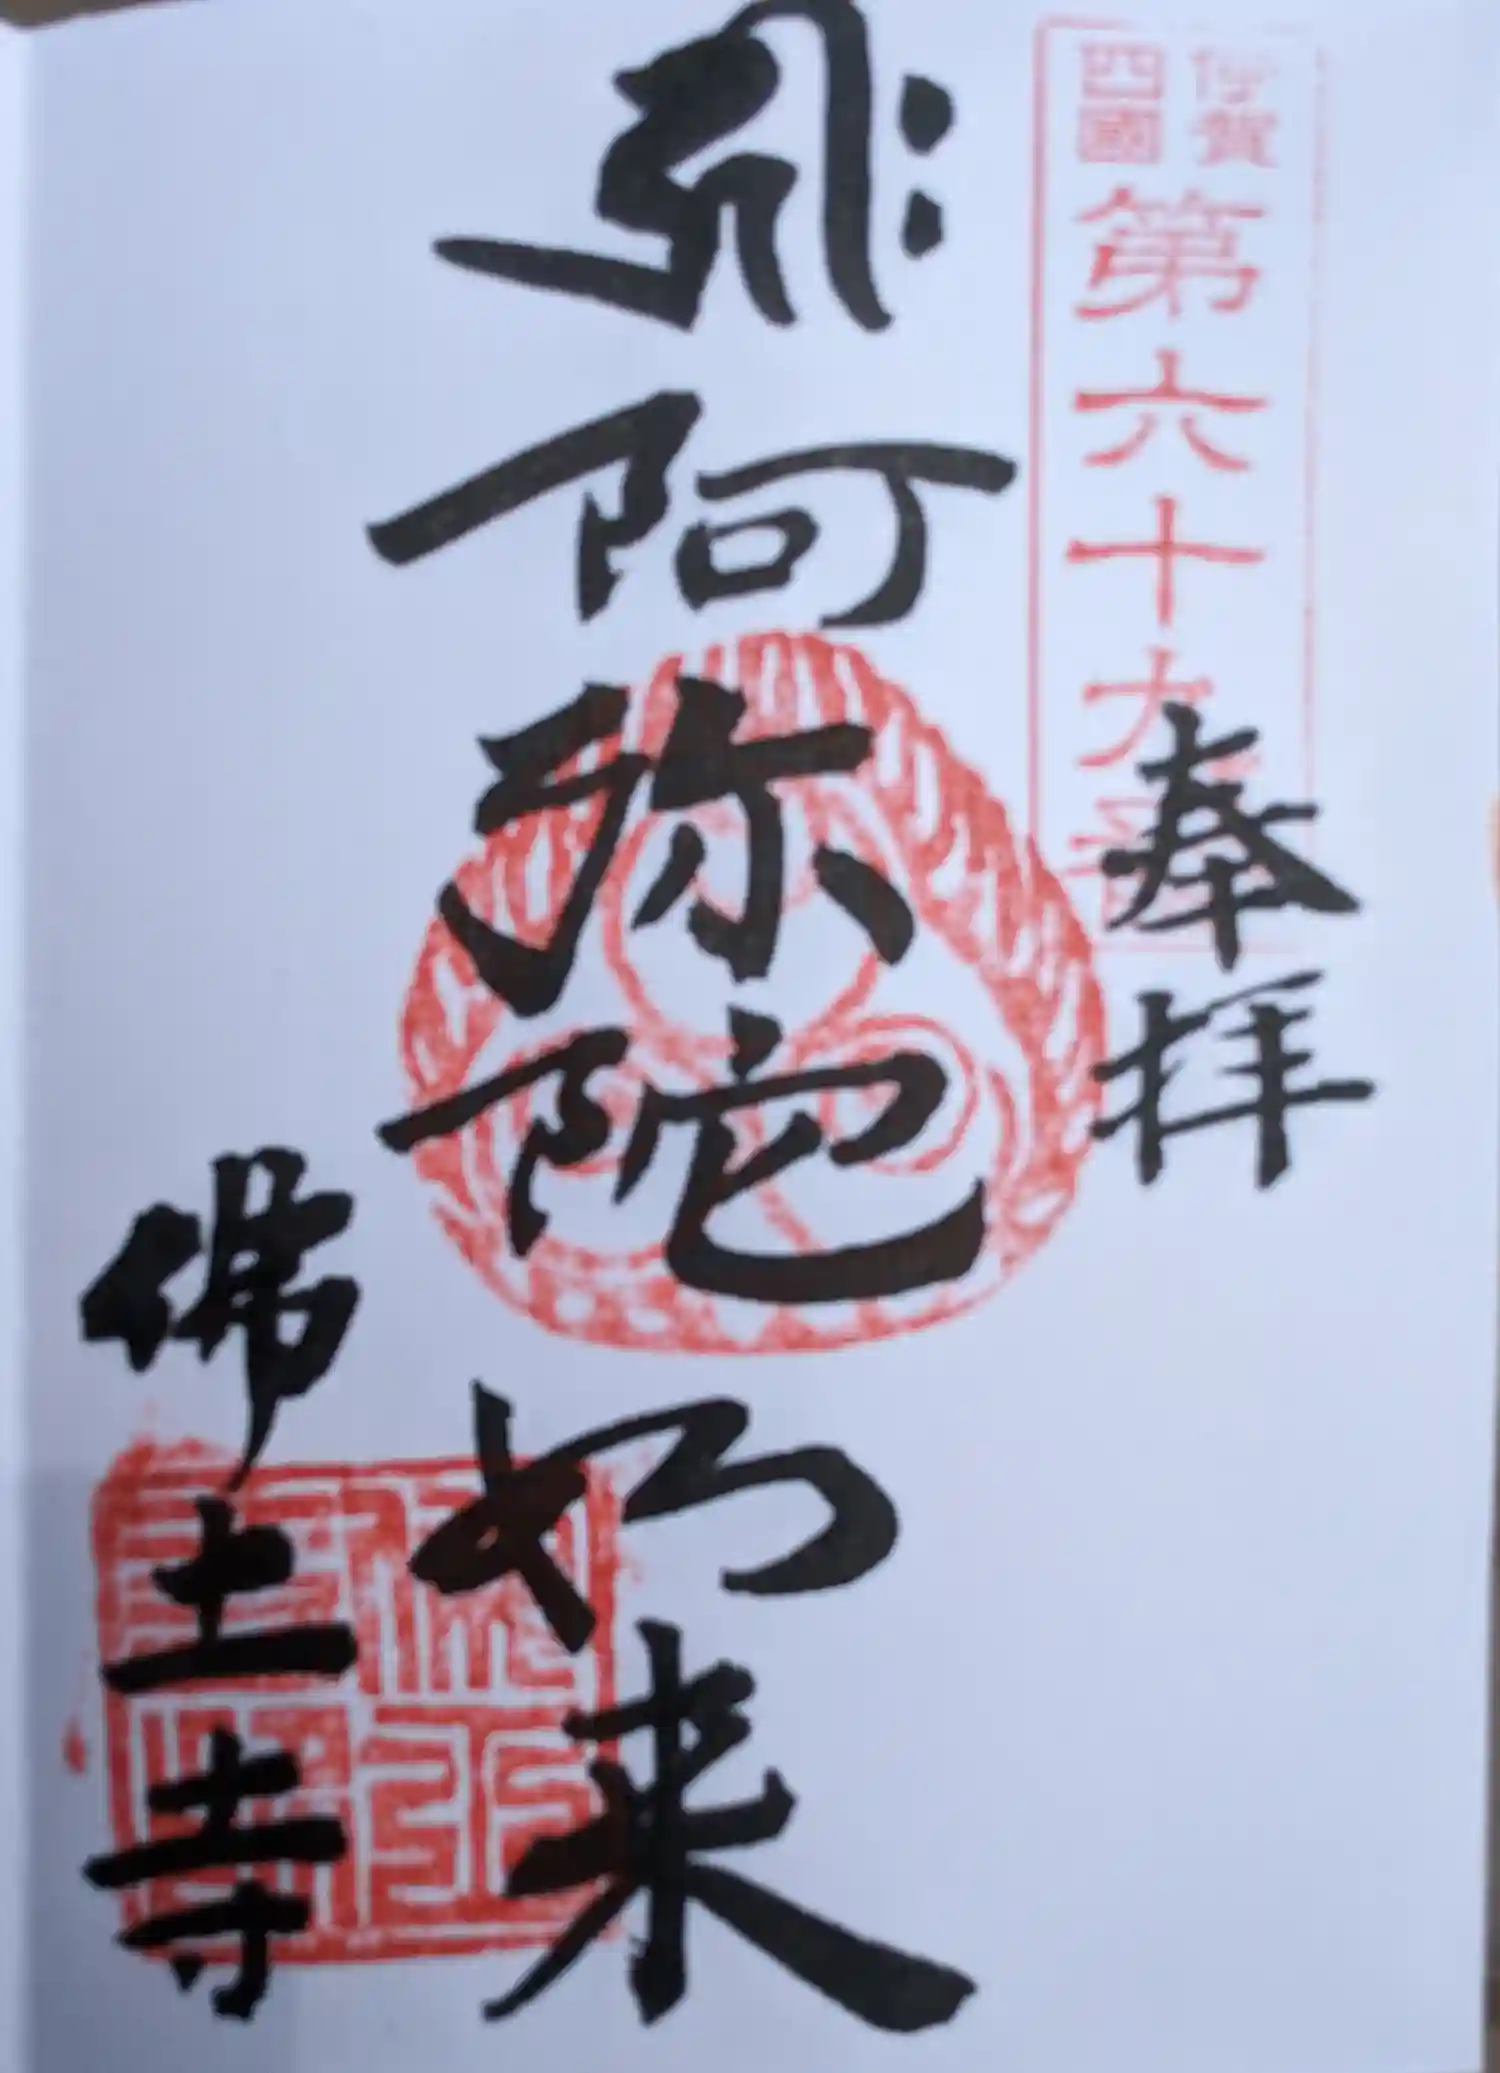 伊賀
四國
第六十九番
奉拝
𑖮𑖿𑖨𑖱𑖾
阿弥陀如来
佛土寺